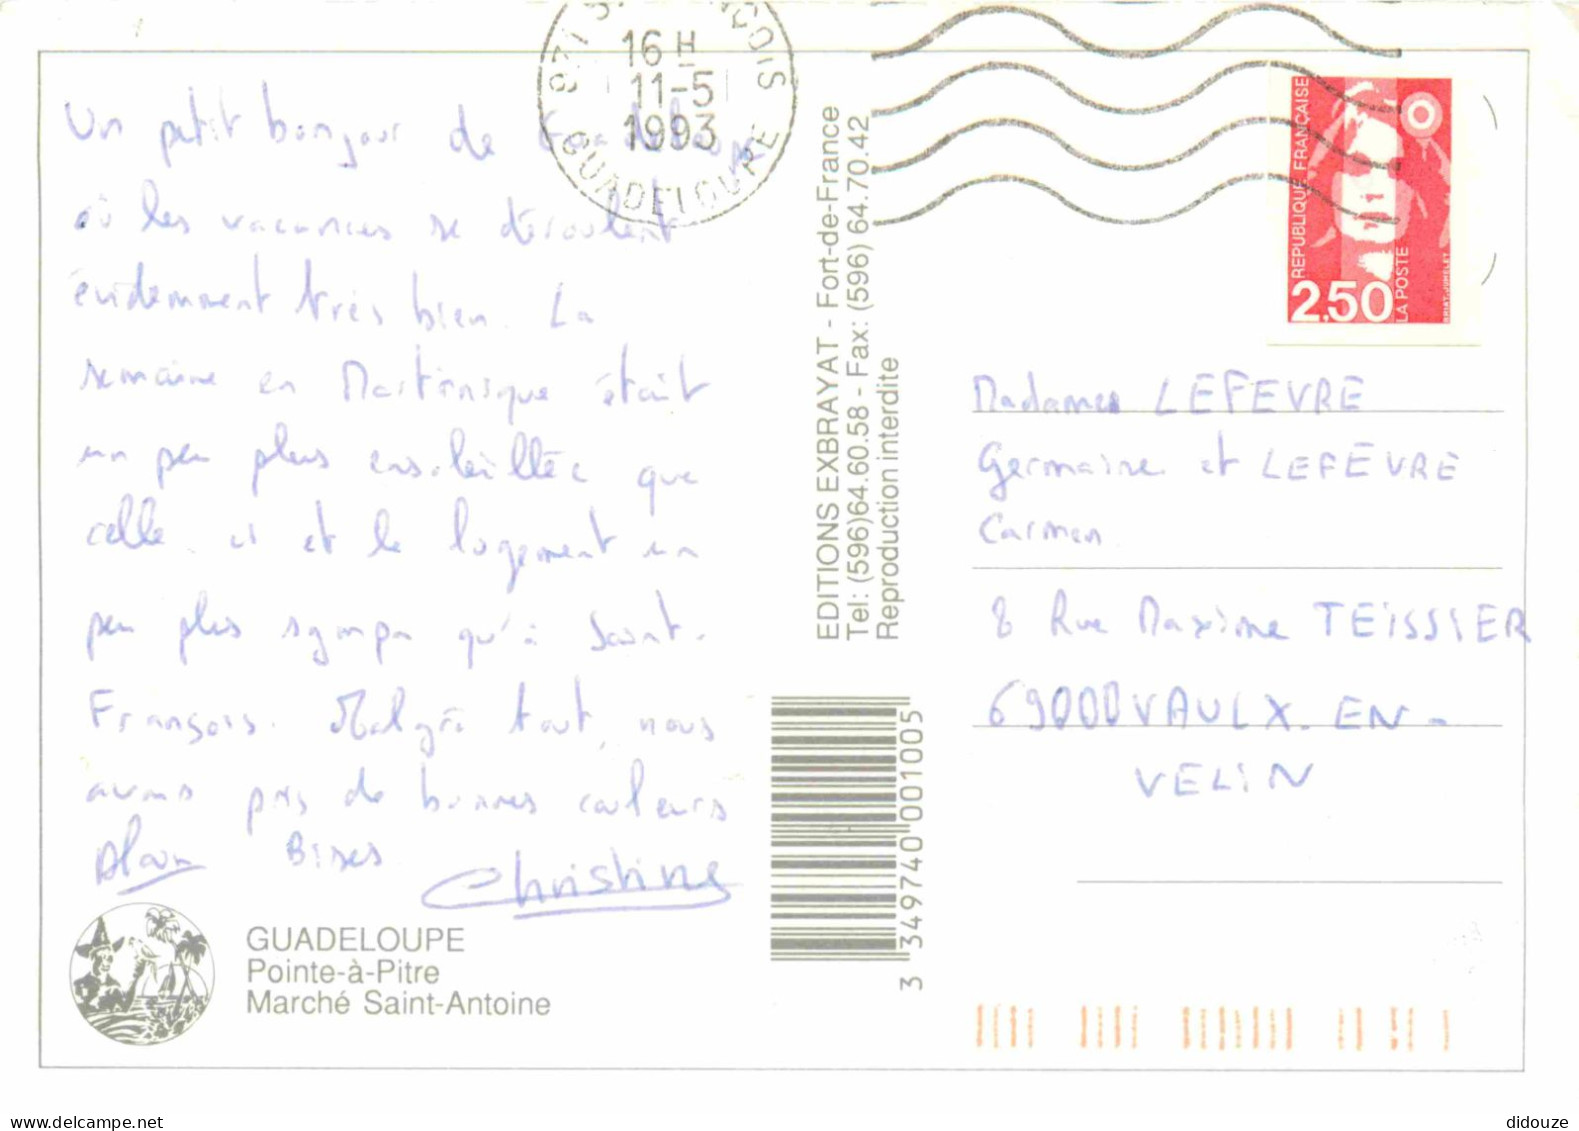 Un petit bonjour de Guadeloupe
où les vacances se déroulent
évidemment très bien. La
semaine en Martinique était
un peu plus ensoleillée que
celle ci et le logement un
peu plus sympa qu'à Saint-
François. Malgré tout, nous
avons pris de bonnes couleurs
Alain Bises Christine
GUADELOUPE
Pointe-à-Pitre
Marché Saint-Antoine
16 H
11-5
1993
GUADELOUPE
EDITIONS EXBRAYAT - Fort-de-France
Tel: (596)64.60.58 - Fax: (596) 64.70.42
Reproduction interdite
3 349740 001005
REPUBLIQUE FRANÇAISE
2,50
LA POSTE
BRIAT-JUMELET
Madames LEFEVRE
Germaine et LEFEVRE
Carmen
8 Rue Maxime TEISSIER
69000 VAULX-EN-
VELIN
delcampe.net
didouze